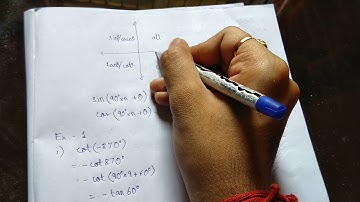 sin/cosec all
tan/cot
sin(90°×n+θ)
cos(90°×n+θ)
Ex - 1
i) cot(-870°)
= -cot 870°
= -cot(90°×9+60°)
= -tan 60°